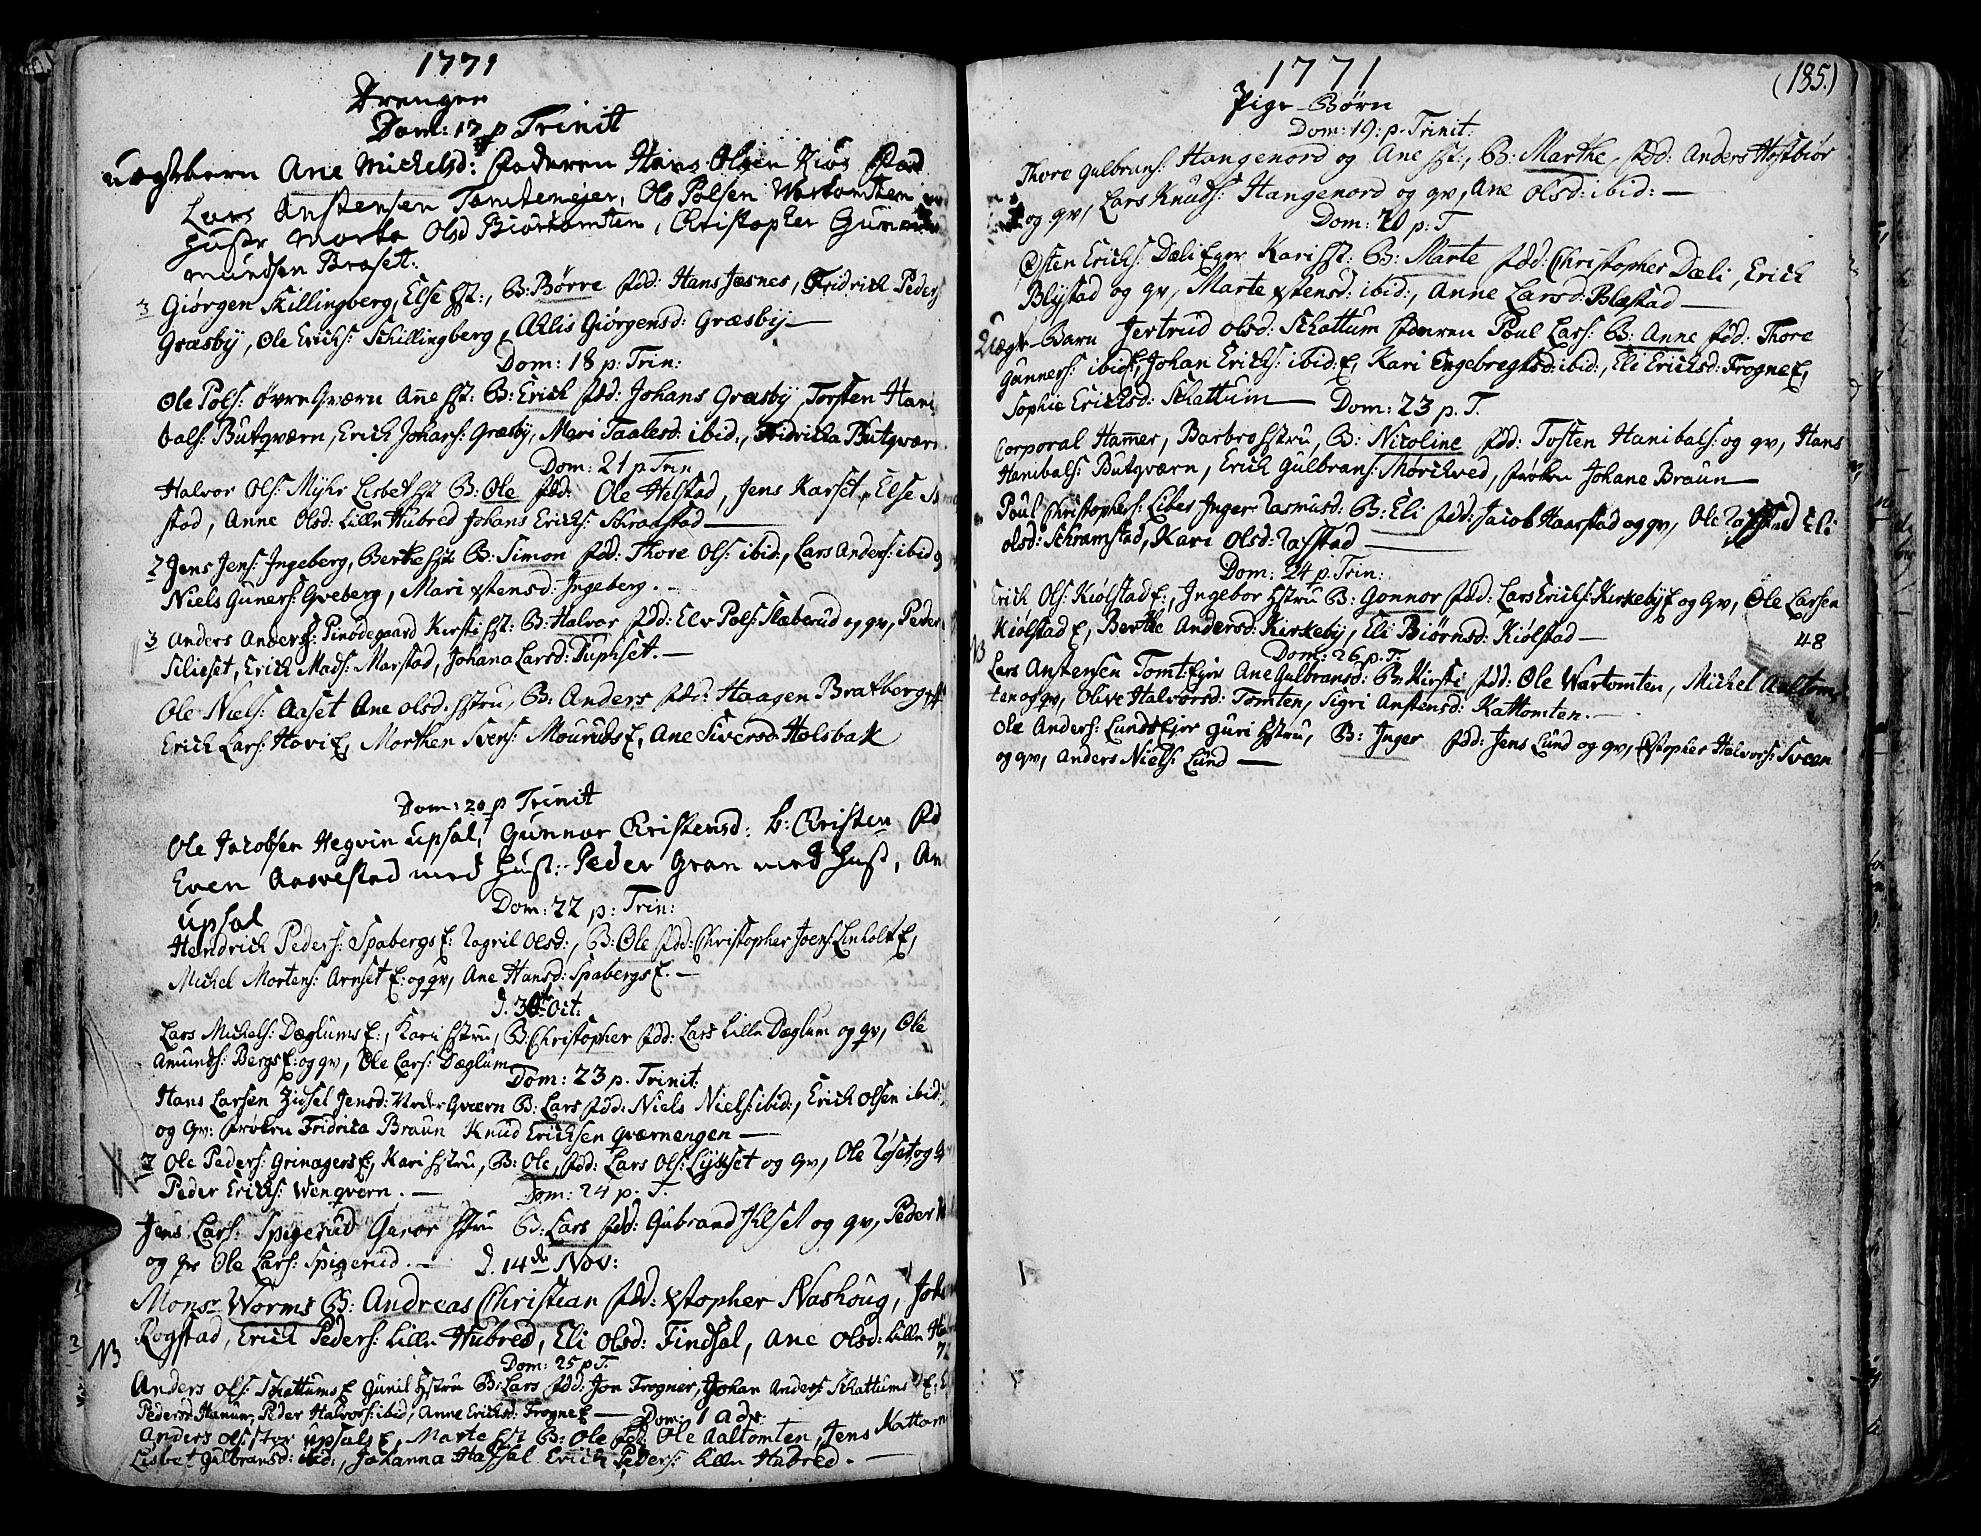 1771
Drenger
Dom: 17 p Trinit
uægtebern Ane Michelsd: faderen Hans Olsen Kiøs fad
Lars Anstensen Tomtemejer, Ole Polsen Wartomten
Hustr Morte Olsd Biørtomten, Christopher Gunne
mundsen Braset:
3 Giørgen Skillingberg, Else hst:, B: Børre fdd: Hans Jæsnes, Fridrich Peders
Græsby, Ole Erichs: Schillingberg, Ahlis Giørgensd: Græsby —
Dom: 18 p: Trin:
Ole Pols: Øvre Gværn Ane hst: B: Erich fdd: Johans Græsby, Torsten Hani
bals: Butqværn, Erich Johans: Græsby, Mari Taalesd: ibid:, Fridricka Butqværn.
Dom: 21 p Trin
Halvor Ols: Myhr Lisbet hst B: Ole fdd: Ole Helstad, Jens Karset, Else
stad, Anne Olsd: Lille Hubred Johans Erichs: Skramstad —
2 Jens Jens: Ingeberg, Berthe hst: B: Simon fdd: Thore Ols: ibid:, Lars Anders: ibid
Niels Guners: Gveberg, Mari Xstensd: Ingeberg. —
3 Anders Anders: Pinødegaard Kirsti hst: B: Halvor fdd: Elv Pols: Slæberud og qv, Peder
Silieset, Erich Mads: Marstad, Johana Larsd: Duphset. —
Ole Niels: Aaset Ane Olsd. hstru, B: Anders fdd: Haagen Bratberg
Erich Lars: Hovi E, Morthen Svens: Mouruds E, Ane Siversd Holsbak
Dom: 20 p Trinit
Ole Jacobsen Hegvin upsal, Gunnor Christensd: b: Christen fd
Even Aasvestad med Hust: Peder Gran med Hust, An
upsal
Dom: 22 p: Trin:
Hendrich Peders: Spabergs E: Ragnil Olsd:, B: Ole fdd: Christopher Joens: Linholt E,
Michel Mortens: Arnset E: og qv, Ane Hansd: Spabergs E. —
d. 30 Oct:
Lars Michels: Dæglums E:, Kari hstru, B: Christopher fdd: Lars Lille Dæglum og qv, Ole
Amunds: Bergs E: og qv, Ole Lars: Dæglum
Dom: 23 p. Trinit:
Hans Larsen Zidsel Jensd: Neder Gværn B: Lars fdd: Niels Niels: ibid:, Erich Olsen ibid:
og Qv: frøken Fridrica Braun Knud Erichsen qværnengen —
2 Ole Peders: Grinagers E, Kari hstru, B: Ole, fdd: Lars Ols: Lykset og qv, Ole Røset og
Peder Erichs: Wenqvern. —
Dom: 24 p. T.
Jens Lars: Spigerud Guror hstru B: Lars fdd: Gubrand Ilset og qv, Peder
og qv Ole Lars: Spigerud. —
d. 14de Nov:
Monsr Worms B: Andreas Christian fdd: Xstopher Nashoug, Joh
NB Rogstad, Erich Peders: Lille Hubred, Eli Olsd: Findsal, Ane Olsd: Lille
Dom: 25 p T.
Anders Ols: Schattums E Gunil hstru B: Lars fdd: Jon Frogner, Johan Anders: Schattums E,
Pedersd Hanun, Peder Halvors: ibid, Anne Erichsd: Frogne E —
Dom: 1 Adv:
Anders Ols: Stor upsals E, Marte hst B: Ole fdd: Ole Aaltomten, Jens Kattom
Lisbet Gulbransd: ibid:, Johanna Hafsal Erich Peders: Lille Hubred. —
1771
(185.)
Pige-Børn
Dom: 19: p. Trinit:
Thore Gulbrans: Hangenord og Ane hst:, B: Marthe, fdd: Anders Høstbiør
og qv, Lars Knuds: Hangenord og qv, Ane Olsd: ibid: —
Dom: 20 p: T
Østen Erichs: Dæli Eger Kari hst: B: Marte fdd: Christopher Dæli, Erich
Blystad og qv, Marte Xstensd: ibid:, Anne Larsd: Blæstad —
Uægte-Barn Jertrud Olsd: Schattum faderen Poul Lars: B: Anne fdd: Thore
Gunners: ibid E, Johan Erichs: ibid: E, Kari Engebregtsd: ibid:, Eli Erichsd: Frogne E,
Sophie Erichsd: Schattum —
Dom: 23 p. T.
Corporal Hamer, Barbro hstru, B: Nicoline fdd: Tosten Hanibals: og qv, Hans
Hanibals: Butqværn, Erich Gulbrans: Mørchved, frøken Johane Braun —
Poul Christophers: Libes Inger Rasmusd: B: Eli fdd: Jacob Haarstad og qv, Ole Eli
Olsd: Schramstad, Kari Olsd: Rafstad —
Dom: 24 p. Trin:
Erich Ols: Kiølstad E:, Ingebor hstru B: Gonnor fdd: Lars Erichs: Kirkeby E og Qv, Ole Larsen
Kiølstad E, Berthe Andersd: Kirkeby, Eli Biørnsd: Kiølstad —
48
Dom: 26 p. T.
Lars Anstensen Tomt Ejer Ane Gulbransd: B: Kirsti fdd: Ole Wartomten, Michel Aaltom
ten og qv, Olive Halvorsd: Tomten, Sigri Anstensd: Kattomten. —
Ole Anders: Lunds Ejer Guri hstru, B: Inger fdd: Jens Lund og qv, Xstopher Halvors: Sveen
og qv, Anders Niels: Lund —